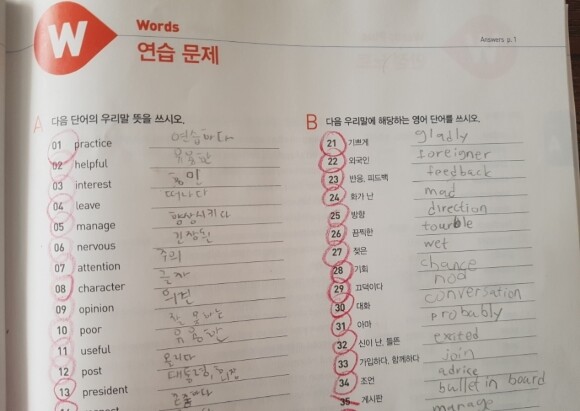 W
Words
연습 문제
Answers p.1
A 다음 단어의 우리말 뜻을 쓰시오.
01 practice 연습하다
02 helpful
03 interest
04 leave 떠나다
05 manage 향상시키다
06 nervous 긴장된
07 attention 주의
08 character 글자
09 opinion 의견
10 poor
11 useful 유용한
12 post
13 president 대통령, 회장
B 다음 우리말에 해당하는 영어 단어를 쓰시오.
21 기쁘게 gladly
22 외국인 foreigner
23 반응, 피드백 feedback
24 화가 난 mad
25 방향 direction
26 끔찍한
27 젖은 wet
28 기회 chance
29 끄덕이다 nod
30 대화 conversation
31 아마 probably
32 신이 난, 들뜬 exited
33 가입하다, 함께하다 join
34 조언 advice
35 게시판 bulletin board
manage